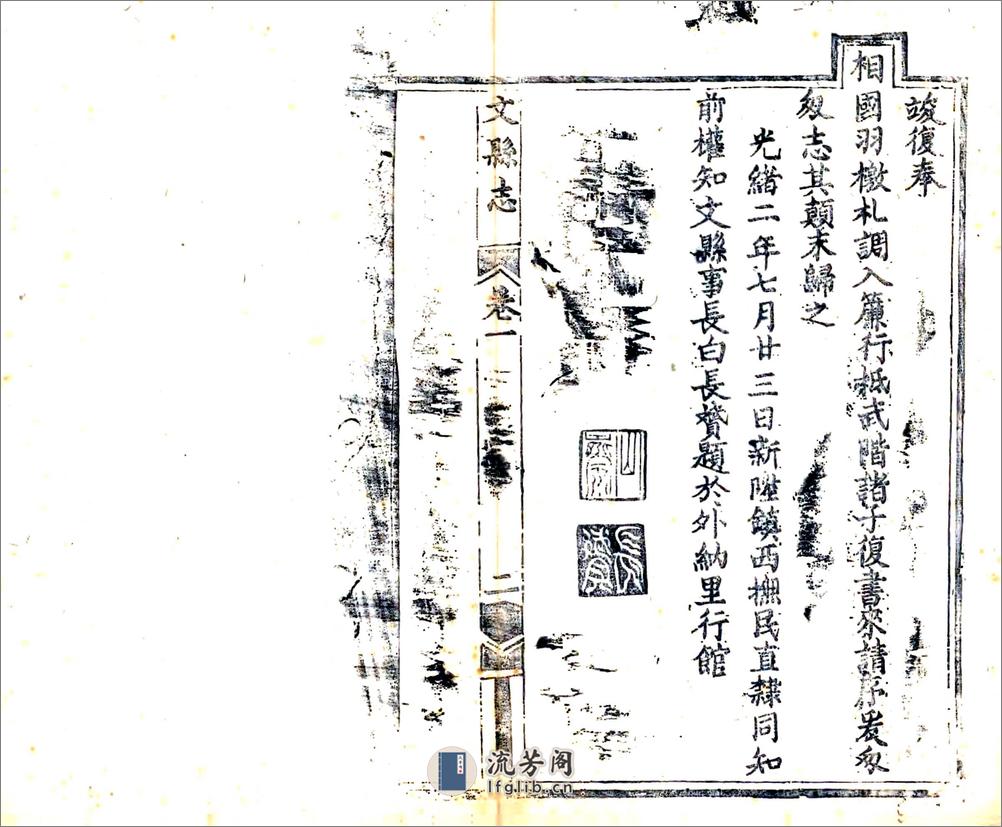 竣復奉
相國羽檄札調入簾行抵武階諸子復書來請序爰
叙志其顛末歸之
光緒二年七月廿三日新陞鎮西撫民直隸同知
前權知文縣事長白長贇題於外納里行館
長贇
文縣志
卷一
二
流芳阁
lfglib.cn